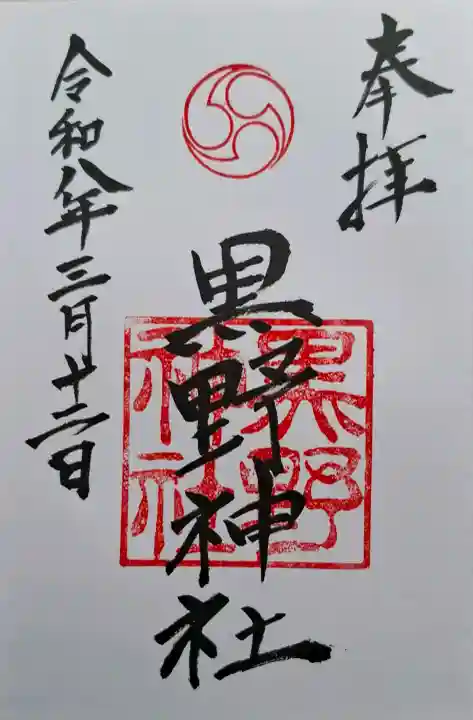 奉拝
黒野神社
黒野
神社
令和八年三月十二日